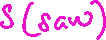 S (saw)